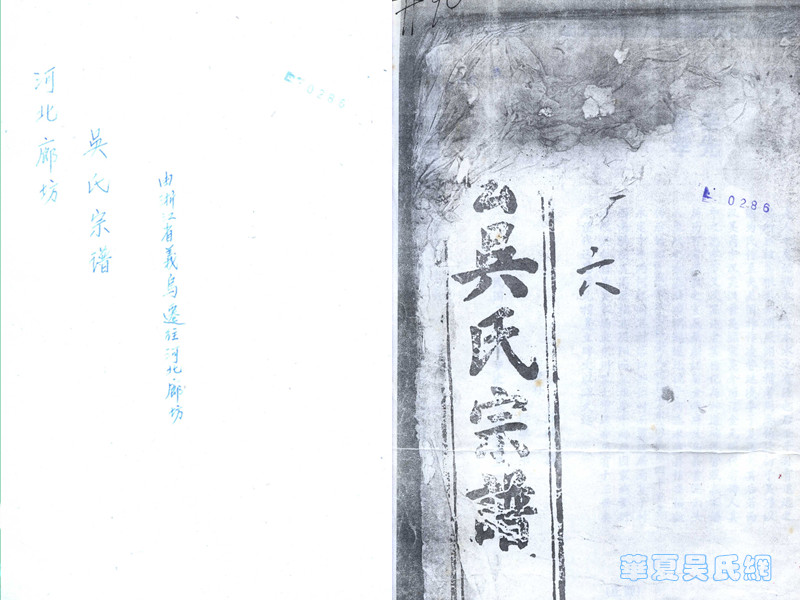 河北廊坊
吳氏宗谱
由浙江省義烏遷往河北廊坊
0286
吳氏宗譜
六
0286
華夏吴氏網